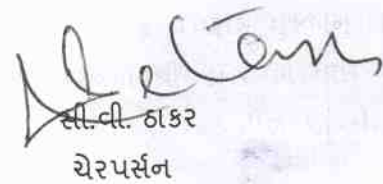 સી.વી. ઠાકર
ચેરપર્સન